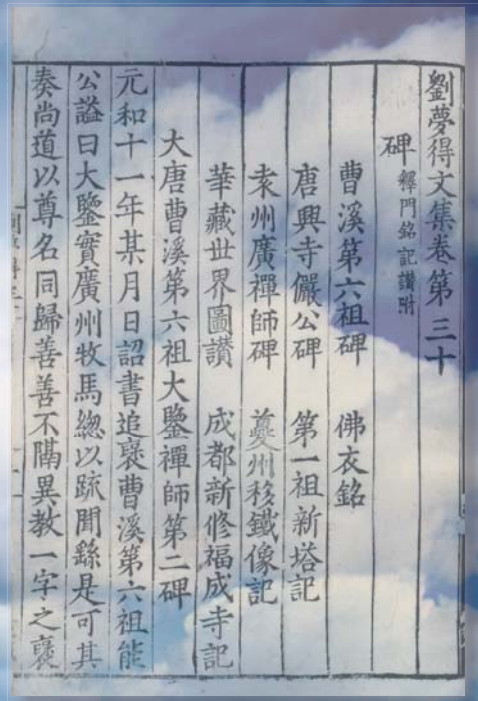 劉夢得文集卷第三十
碑 釋門銘記讚附
曹溪第六祖碑 佛衣銘
唐興寺儼公碑 第一祖新塔記
袁州廣禪師碑 夔州移鐵像記
華藏世界圖讃 成都新修福成寺記
大唐曹溪第六祖大鑒禪師第二碑
元和十一年某月日詔書追褒曹溪第六祖能
公謚曰大鑒實廣州牧馬總以疏聞繇是可其
奏尚道以尊名同歸善善不隔異教一字之褒